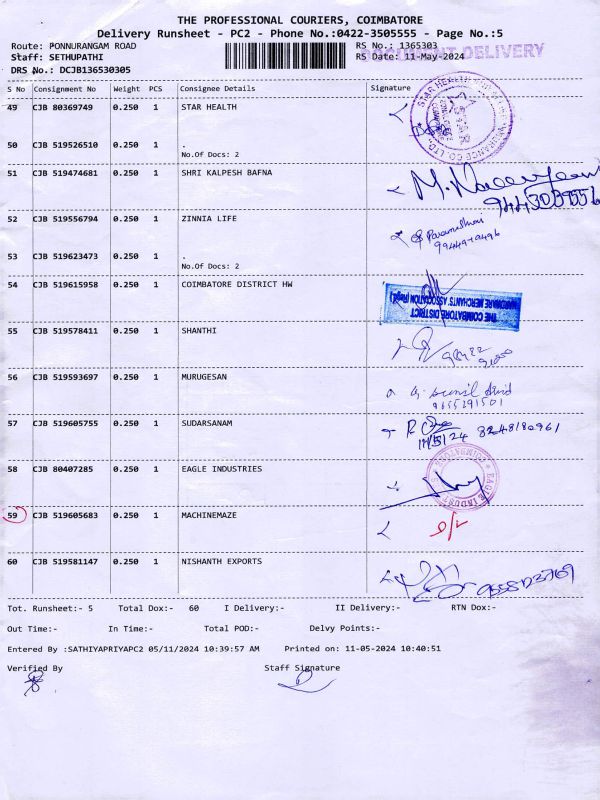 THE PROFESSIONAL COURIERS, COIMBATORE
Delivery Runsheet - PC2 - Phone No.:0422-3505555 - Page No.:5
Route: PONNURANGAM ROAD RS No.: 1365303
Staff: SETHUPATHI RS Date: 11-May-2024
DOCUMENT DELIVERY
DRS No.: DCJB136530305
S No Consignment No Weight PCS Consignee Details Signature
49 CJB 80369749 0.250 1 STAR HEALTH
50 CJB 519526510 0.250 1 .
No.Of Docs: 2
51 CJB 519474681 0.250 1 SHRI KALPESH BAFNA
52 CJB 519556794 0.250 1 ZINNIA LIFE
53 CJB 519623473 0.250 1 .
No.Of Docs: 2
54 CJB 519615958 0.250 1 COIMBATORE DISTRICT HW
THE COIMBATORE DISTRICT
HARDWARE MERCHANTS ASSOCIATION (Regd.)
55 CJB 519578411 0.250 1 SHANTHI
56 CJB 519593697 0.250 1 MURUGESAN
9655291501
57 CJB 519605755 0.250 1 SUDARSANAM
8248180961
58 CJB 80407285 0.250 1 EAGLE INDUSTRIES
59 CJB 519605683 0.250 1 MACHINEMAZE
60 CJB 519581147 0.250 1 NISHANTH EXPORTS
Tot. Runsheet:- 5 Total Dox:- 60 I Delivery:- II Delivery:- RTN Dox:-
Out Time:- In Time:- Total POD:- Delvy Points:-
Entered By :SATHIYAPRIYAPC2 05/11/2024 10:39:57 AM Printed on: 11-05-2024 10:40:51
Verified By Staff Signature